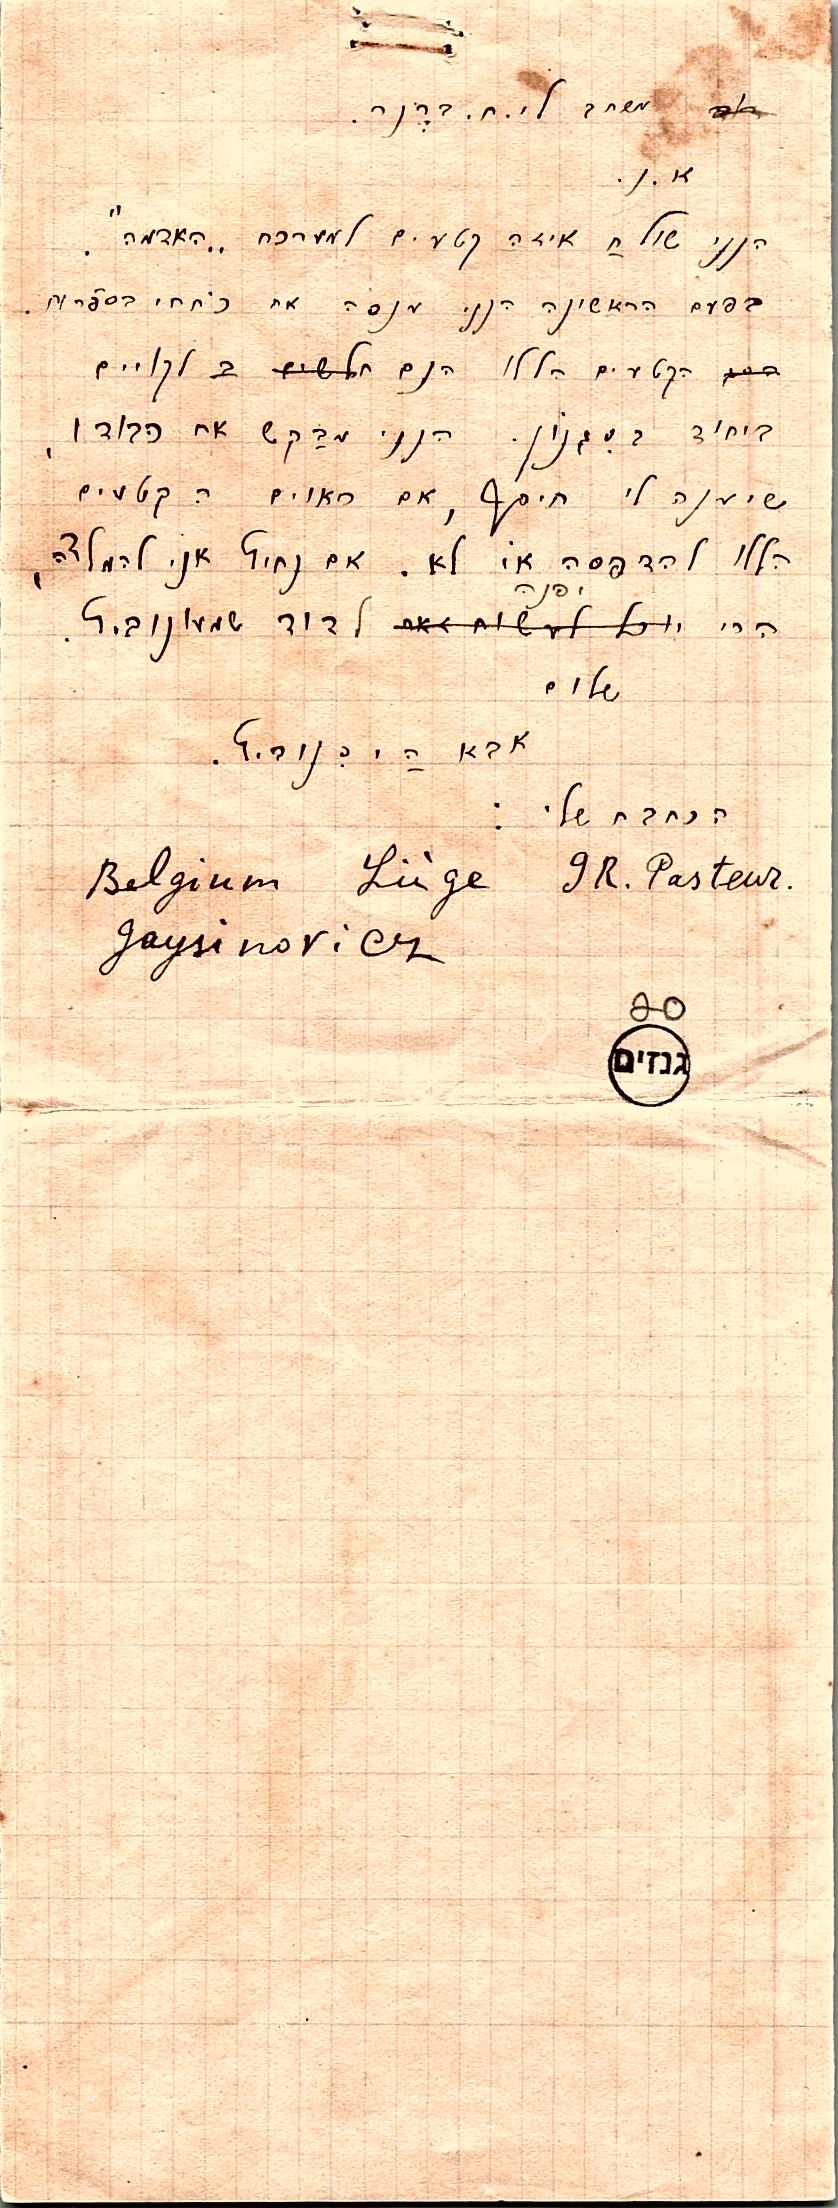 מכתב לי.ח. ברֶנר.
א.נ.
הנני שולחַ איזה קטעים למערכת „האדמה".
בפעם הראשינה הנני מנסה את כֹחתי בספרות.
הקטעים הללו הנם חלשים ב לקויים
ביחוד בסִגנון. הנני מבַקש את כבודו,
שיענה לי תיכף, אם ראוים הקטעים
הללו להדפסה אוֹ לא. אם נחוץ אני להמלצה,
יפנה
הרי יוכל לעשות זאת לדוד שמעונוביץ.
שלום
אבא הַיסִנוביץ.
הכתבת שלי:
Belgium Liège 9R. Pasteur.
Gaysinovicz
80
גנזים